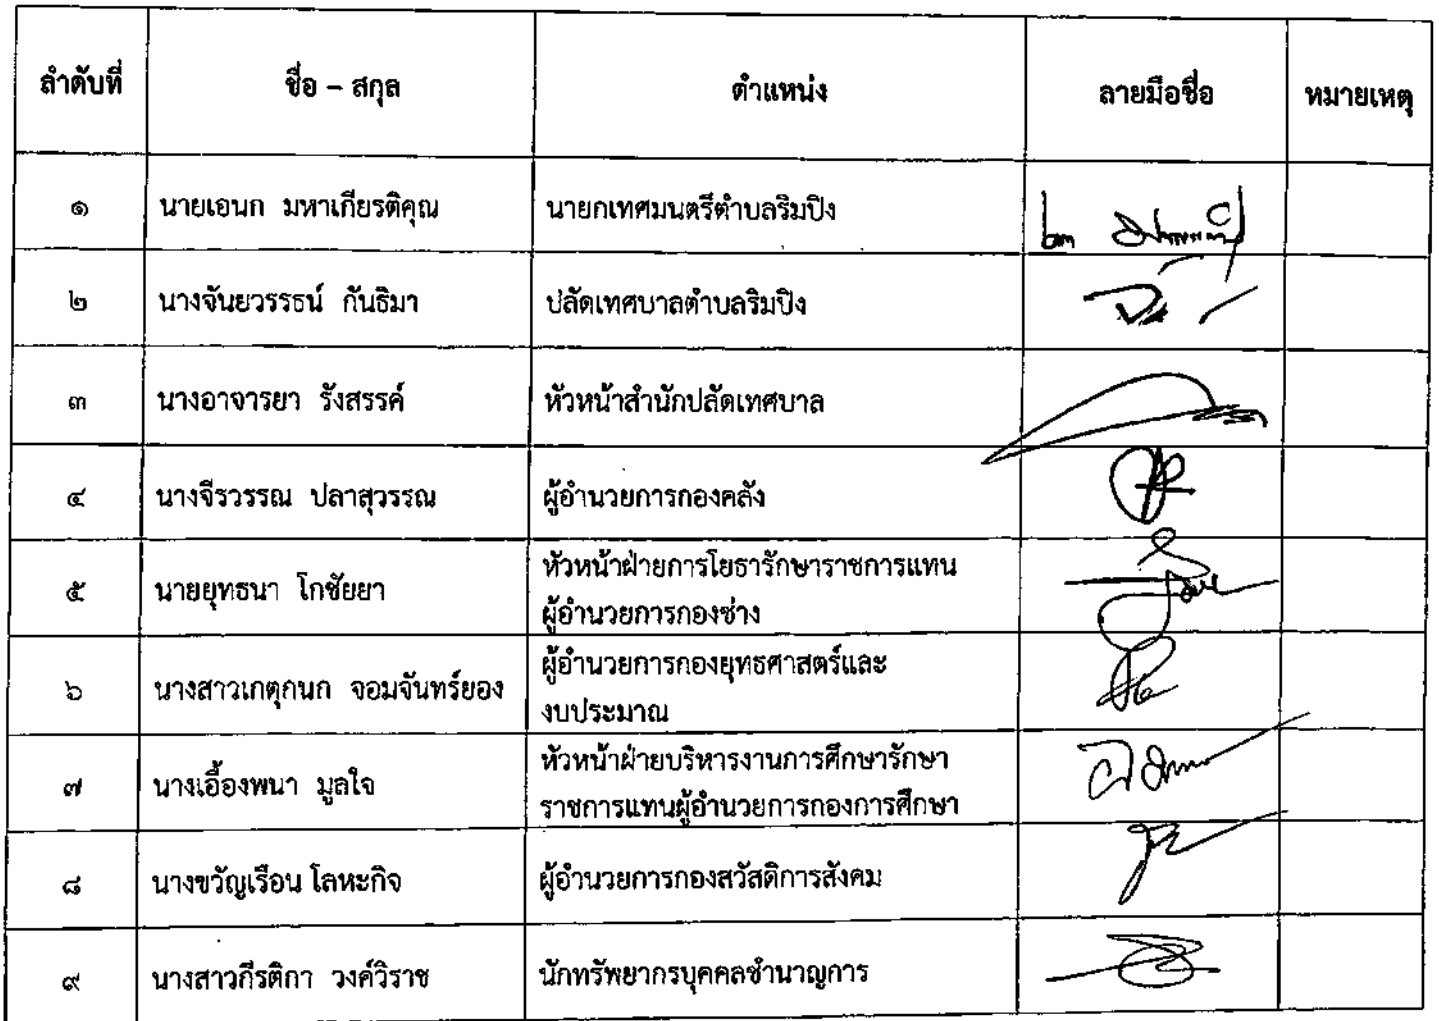 ลำดับที่ ชื่อ – สกุล ตำแหน่ง ลายมือชื่อ หมายเหตุ
๑ นายเอนก มหาเกียรติคุณ นายกเทศมนตรีตำบลริมปิง
๒ นางจันยวรรธน์ กันธิมา ปลัดเทศบาลตำบลริมปิง
๓ นางอาจารยา รังสรรค์ หัวหน้าสำนักปลัดเทศบาล
๔ นางจีรวรรณ ปลาสุวรรณ ผู้อำนวยการกองคลัง
๕ นายยุทธนา โกชัยยา หัวหน้าฝ่ายการโยธารักษาราชการแทน
ผู้อำนวยการกองช่าง
๖ นางสาวเกตุกนก จอมจันทร์ยอง ผู้อำนวยการกองยุทธศาสตร์และ
งบประมาณ
๗ นางเอื้องพนา มูลใจ หัวหน้าฝ่ายบริหารงานการศึกษารักษา
ราชการแทนผู้อำนวยการกองการศึกษา
๘ นางขวัญเรือน โลหะกิจ ผู้อำนวยการกองสวัสดิการสังคม
๙ นางสาวกีรติกา วงค์วิราช นักทรัพยากรบุคคลชำนาญการ